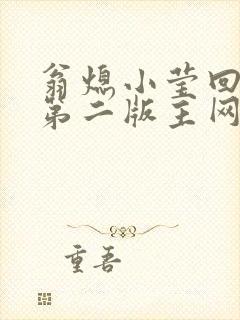 翁熄小莹回
第二版主网
重吾